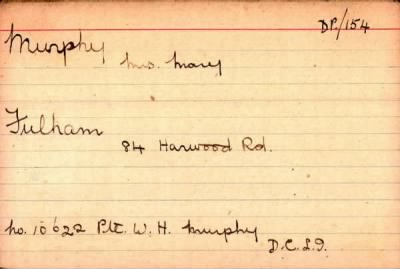 DP/154
Murphy
Mrs. Mary
Fulham
84 Harwood Rd.
No. 10622 Pte. W. H. Murphy
D.C.L.I.